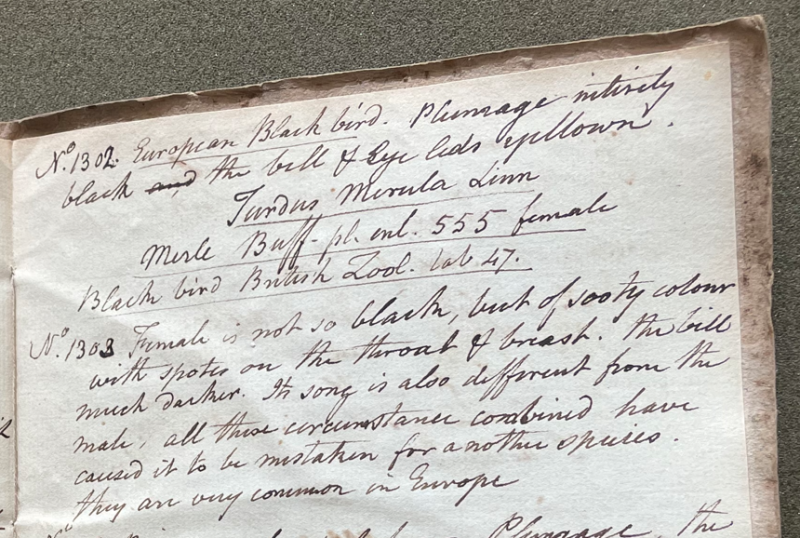 No. 1302. European Black bird. Plumage intirely
black and the bill & Eye lids yellown.
Turdus Merula Linn
Merle Buff. pl. enl. 555 female
Black bird British Zool. tab. 47.
No. 1303 Female is not so black, but of sooty colour
with spots on the throat & breast. the bill
much darker. Its song is also different from the
male, all these circumstance combined have
caused it to be mistaken for another species.
they are very common in Europe
Plumage, the